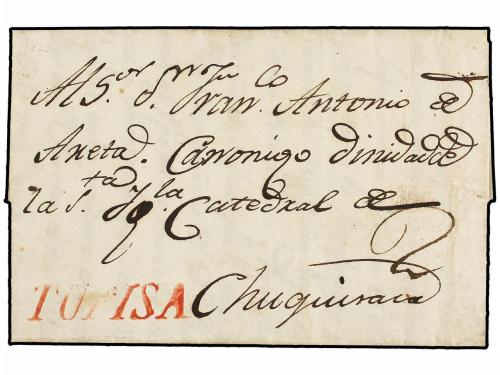 Al S.or d.n Fran.co Antonio de
Areta. Canonigo dinidad de
la S.ta Ygla Catedral de
2
TUPISA Chuquisaca